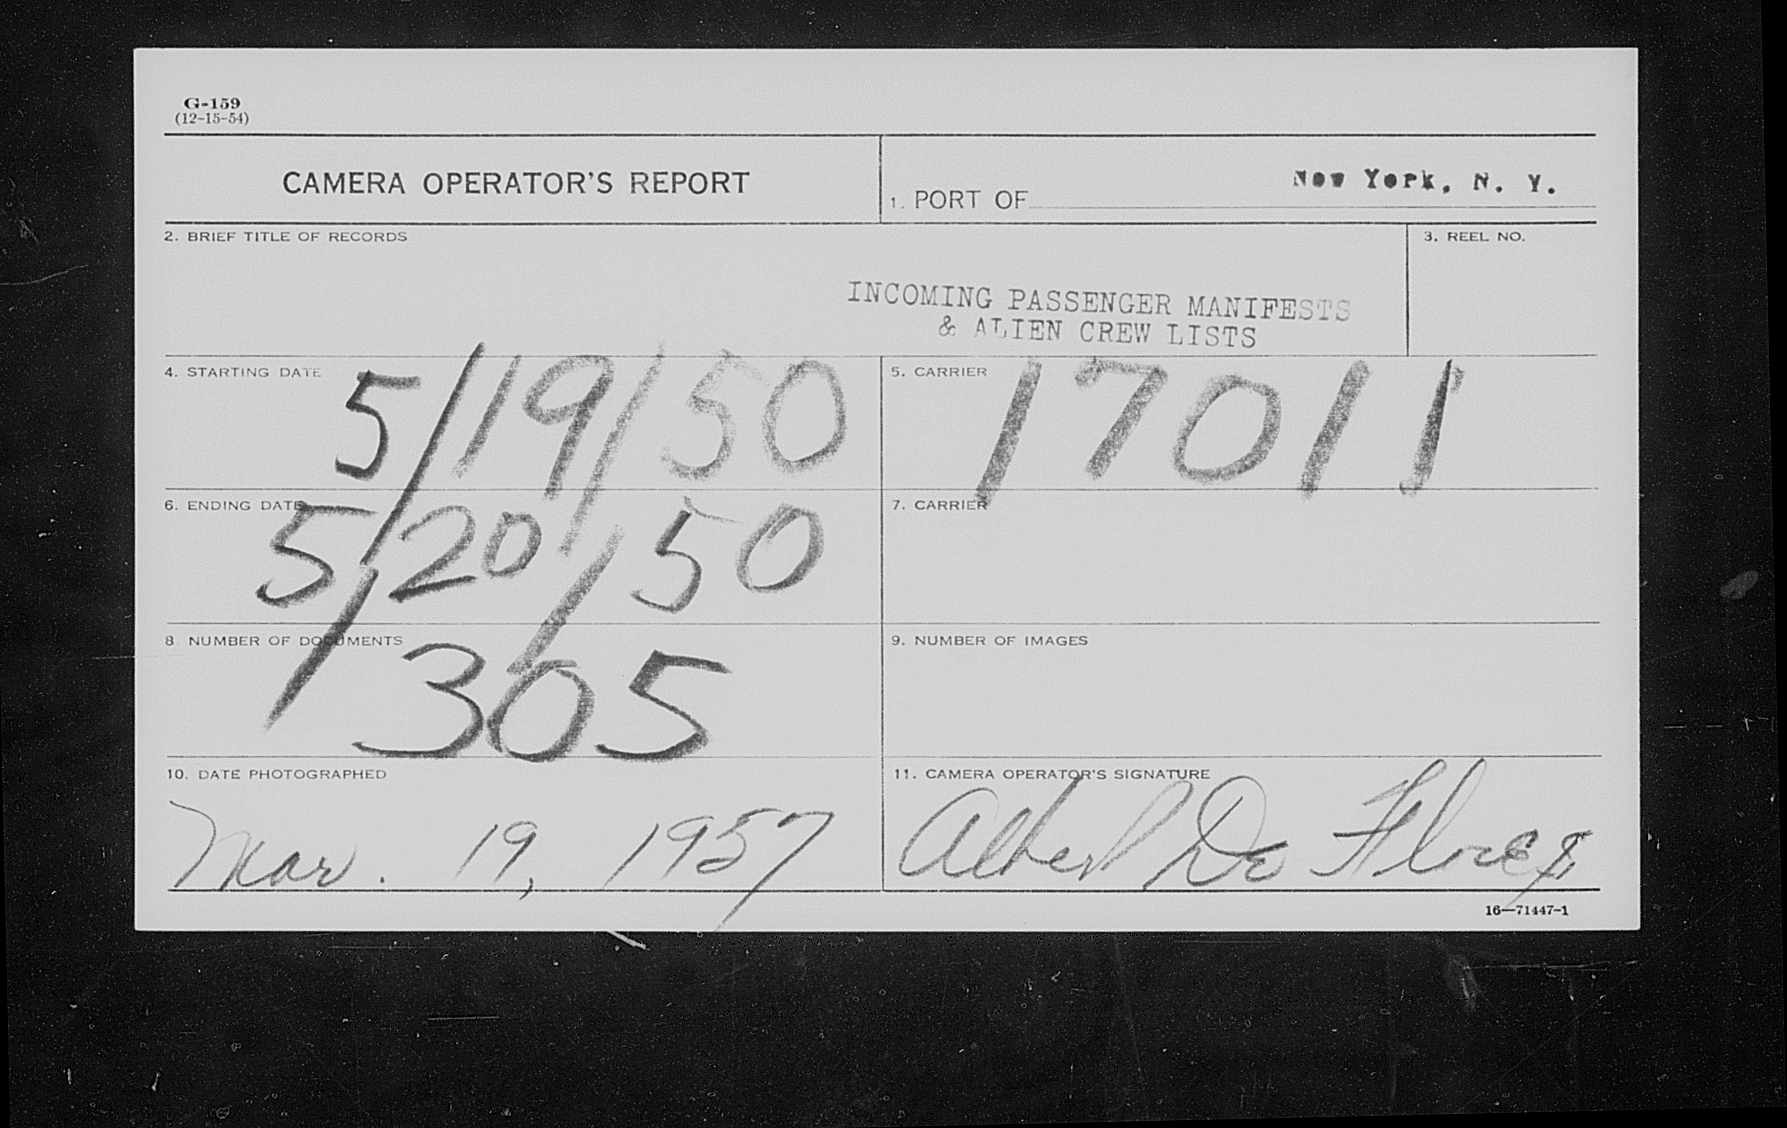 G-159
(12-15-54)
CAMERA OPERATOR'S REPORT
1. PORT OF New York, N. Y.
2. BRIEF TITLE OF RECORDS
INCOMING PASSENGER MANIFESTS
& ALIEN CREW LISTS
3. REEL NO.
4. STARTING DATE 5/19/50
5. CARRIER 17011
6. ENDING DATE 5/20/50
7. CARRIER
8 NUMBER OF DOCUMENTS 305
9. NUMBER OF IMAGES
10. DATE PHOTOGRAPHED
Mar. 19, 1957
11. CAMERA OPERATOR'S SIGNATURE
Albert De Flores
16—71447-1